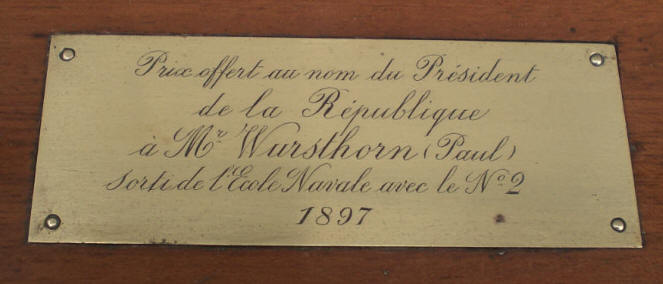 Prix offert au nom du Président
de la République
à Mr. Wursthorn (Paul)
Sorti de l'Ecole Navale avec le No. 2
1897